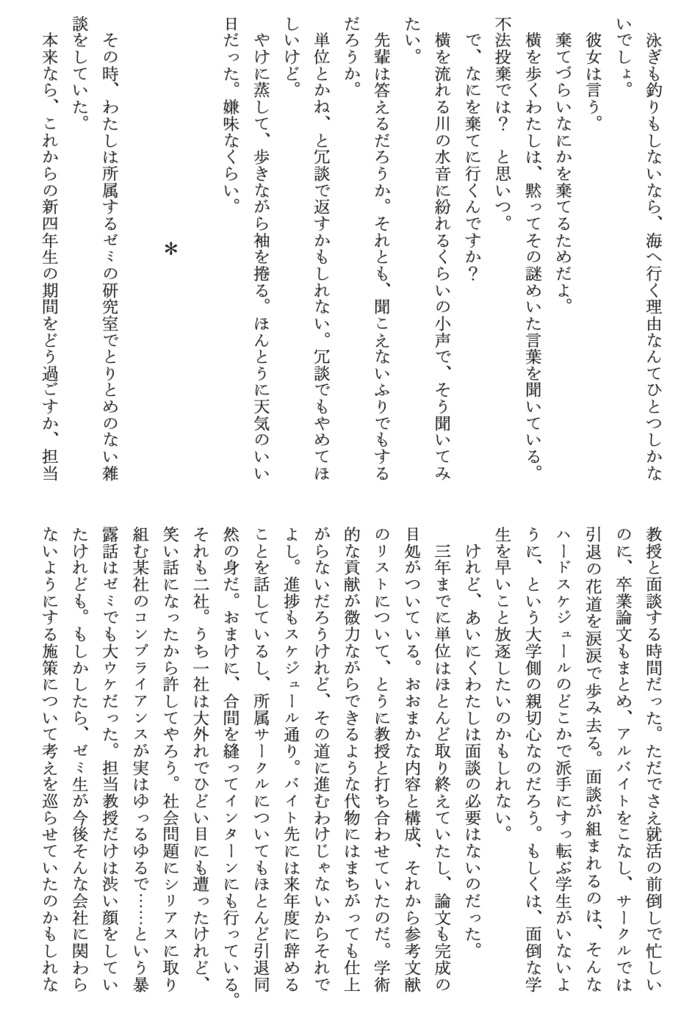 泳ぎも釣りもしないなら、海へ行く理由なんてひとつしかな
いでしょ。
彼女は言う。
棄てづらいなにかを棄てるためだよ。
横を歩くわたしは、黙ってその謎めいた言葉を聞いている。
不法投棄では？　と思いつ。
で、なにを棄てに行くんですか？
横を流れる川の水音に紛れるくらいの小声で、そう聞いてみ
たい。
先輩は答えるだろうか。それとも、聞こえないふりでもする
だろうか。
単位とかね、と冗談で返すかもしれない。冗談でもやめてほ
しいけど。
やけに蒸して、歩きながら袖を捲る。ほんとうに天気のいい
日だった。嫌味なくらい。
＊
その時、わたしは所属するゼミの研究室でとりとめのない雑
談をしていた。
本来なら、これからの新四年生の期間をどう過ごすか、担当
教授と面談する時間だった。ただでさえ就活の前倒しで忙しい
のに、卒業論文もまとめ、アルバイトをこなし、サークルでは
引退の花道を涙涙で歩み去る。面談が組まれるのは、そんな
ハードスケジュールのどこかで派手にすっ転ぶ学生がいないよ
うに、という大学側の親切心なのだろう。もしくは、面倒な学
生を早いこと放逐したいのかもしれない。
けれど、あいにくわたしは面談の必要はないのだった。
三年までに単位はほとんど取り終えていたし、論文も完成の
目処がついている。おおまかな内容と構成、それから参考文献
のリストについて、とうに教授と打ち合わせていたのだ。学術
的な貢献が微力ながらできるような代物にはまちがっても仕上
がらないだろうけれど、その道に進むわけじゃないからそれで
よし。進捗もスケジュール通り。バイト先には来年度に辞める
ことを話しているし、所属サークルについてもほとんど引退同
然の身だ。おまけに、合間を縫ってインターンにも行っている。
それも二社。うち一社は大外れでひどい目にも遭ったけれど、
笑い話になったから許してやろう。社会問題にシリアスに取り
組む某社のコンプライアンスが実はゆっるゆるで……という暴
露話はゼミでも大ウケだった。担当教授だけは渋い顔をしてい
たけれども。もしかしたら、ゼミ生が今後そんな会社に関わら
ないようにする施策について考えを巡らせていたのかもしれな